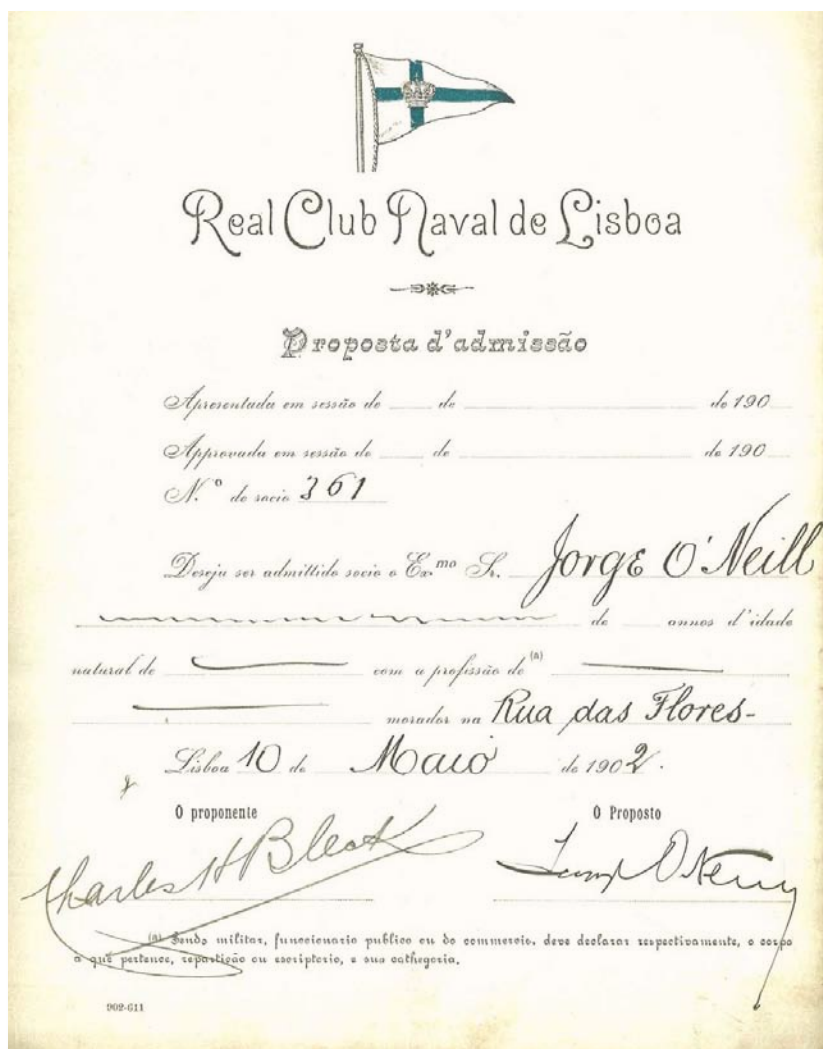 Real Club Naval de Lisboa
Proposta d'admissão
Apresentada em sessão de de de 190
Approvada em sessão de de de 190
N.º de socio 361
Deseja ser admittido socio o Ex.mo Sr. Jorge O'Neill
de annos d'idade
natural de com a profissão de (a)
morador na Rua das Flores-
Lisboa 10 de Maio de 1902.
O proponente O Proposto
Charles H Bleck
(a) Sendo militar, funccionario publico ou do commercio, deve declarar respectivamente, o corpo
a que pertence, repartição ou escriptorio, e sua cathegoria.
902-611